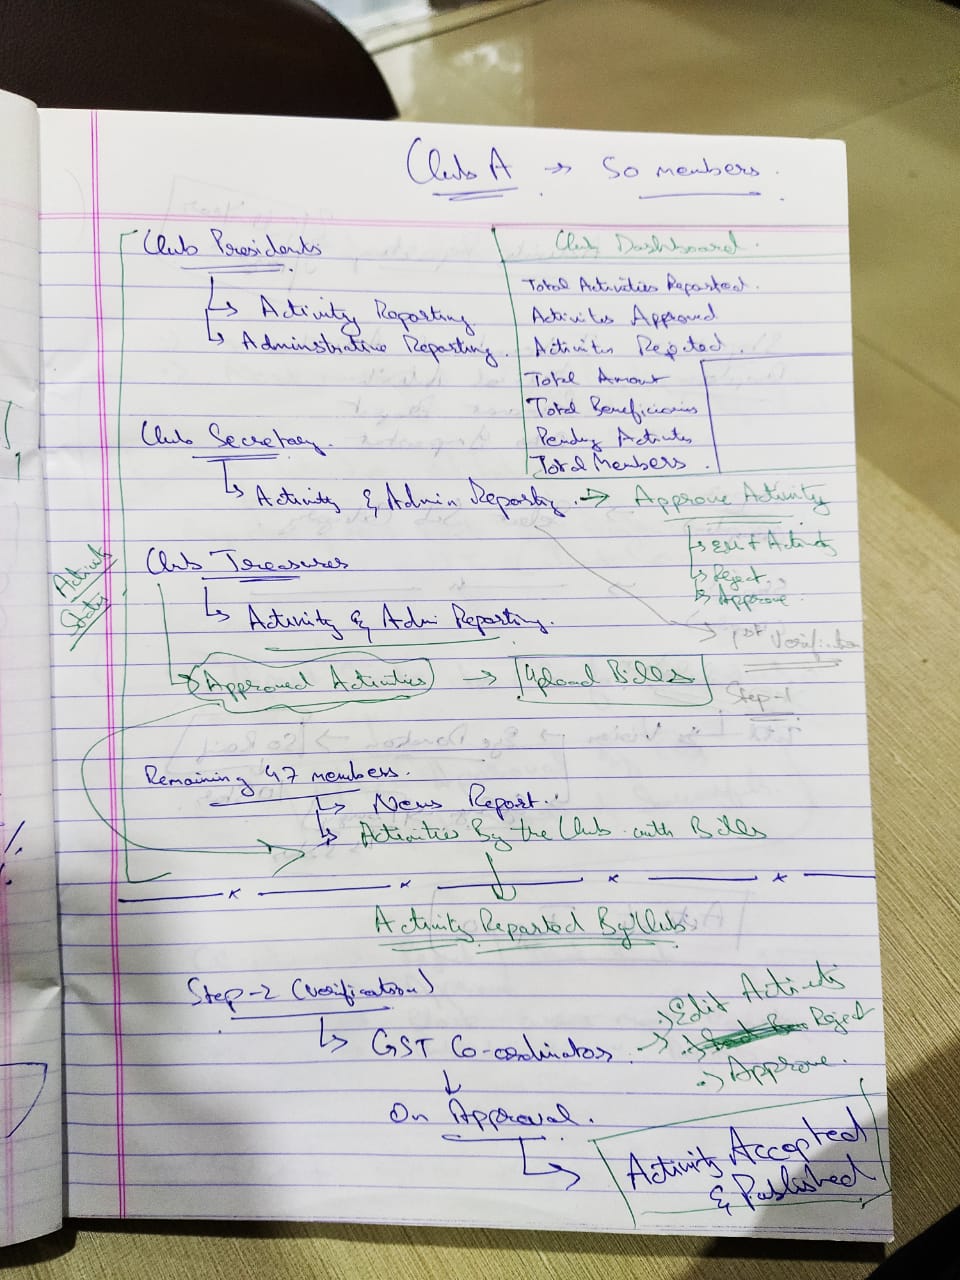 Club A → 50 members.
Club Presidents
↳ Activity Reporting
↳ Adminstrative Reporting.
Club Dashboard.
Total Activities Reported.
Activites Approved
Activites Rejected.
Total Amount
Total Beneficiaries
Pending Activites
Total Members.
Club Secretary.
↳ Activity & Admin Reporting. → Approve Activity
↳ Edit Activity
↳ Reject.
↳ Approve
1st Verification
Step-1
Club Treasures
↳ Activity & Admin Reporting.
Approved Activities → Upload Bills
Activity
Remaining 47 members.
↳ News Report.
↳ Activities By the Club with Bills
Activity Reported By Club
Step-2 (Verification)
↳ GST Co-ordinator →
→ Edit Activity
→ Reject
→ Approve.
On Approval.
Activity Accepted
& Published